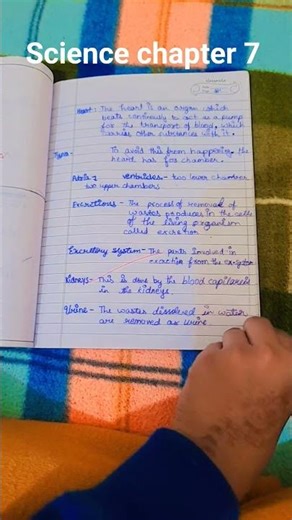 Science chapter 7
Heart: The heart is an organ which
beats continually to act as a pump
for the transport of blood, which
carries other substances with it.
To avoid this from happening the
heart has for chamber.
Atria - ventricles - two lower chamber
two upper chambers
Excretions - The process of removal of
wastes produces in the cells
of the living organism
called excretion
Excretory system - The parts involved in
from the
Kidneys - This is done by the blood capillaries
in the kidneys.
Urine - The wastes dissolved in water
are removed as urine.